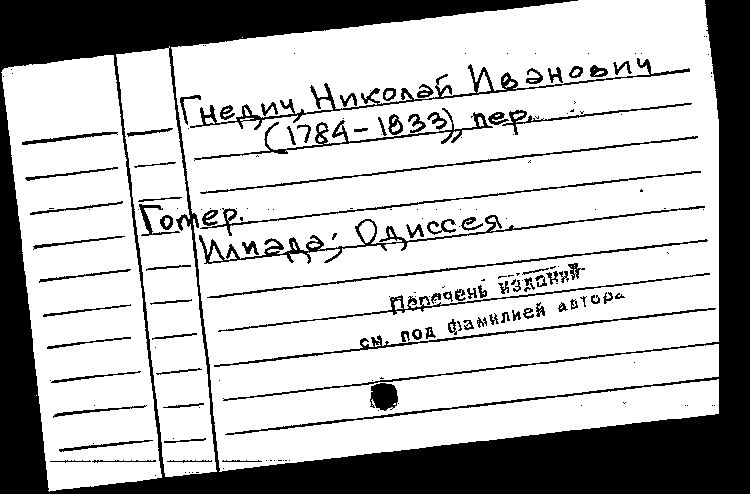 Гнедич, Николай Иванович
(1784-1833), пер.
Гомер.
Илиада; Одиссея.
Перечень изданий
см. под фамилией автора